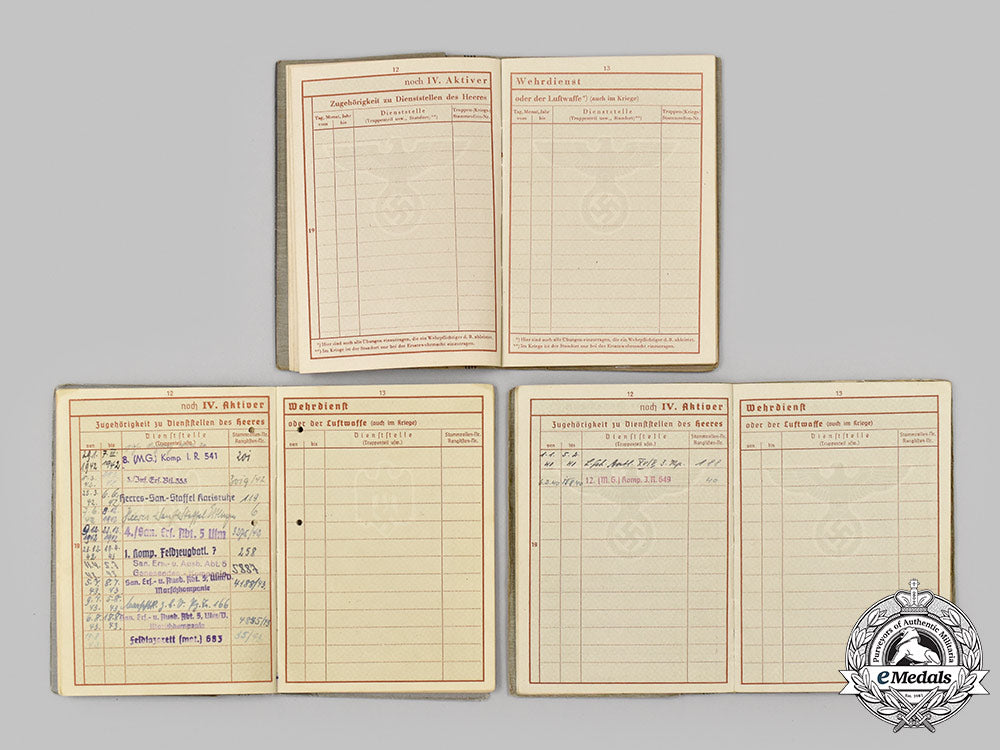 12
noch IV. Aktiver
Zugehörigkeit zu Dienststellen des Heeres
Tag, Monat, Jahr
von bis
Dienststelle
(Truppenteil usw., Standort, **)
Truppen-/Kriegs-
Stammrollen-Nr.
19
*) Hier sind auch alle Übungen einzutragen, die ein Wehrpflichtiger d. B. ableistet.
**) Im Kriege ist der Standort nur bei der Ersatzwehrmacht einzutragen.
13
Wehrdienst
oder der Luftwaffe*) (auch im Kriege)
Tag, Monat, Jahr
von bis
Dienststelle
(Truppenteil usw., Standort, **)
Truppen-/Kriegs-
Stammrollen-Nr.
*) Hier sind auch alle Übungen einzutragen, die ein Wehrpflichtiger d. B. ableistet.
**) Im Kriege ist der Standort nur bei der Ersatzwehrmacht einzutragen.
12
noch IV. Aktiver
Zugehörigkeit zu Dienststellen des Heeres
von bis
Dienststelle
(Truppenteil usw.)
Stammrollen-Nr.
Ranglisten-Nr.
1942 1942 8. (M.G.) Komp. I. R. 541 201
3. Inf. Ers. Btl. 353 3019/42
Heeres-San.-Staffel Karlsruhe 119
6
1942 1942 4./San. Ers. Abt. 5 Ulm
1. Komp. Feldzeugbatl. 7 258
San. Ers.- u. Ausb. Abt. 5 5887
San. Ers.- u. Ausb. Abt. 5, Ulm/D. 4188/43
Marschkompanie
166
San. Ers.- u. Ausb. Abt. 5, Ulm/D. 4845/43
Marschkompanie
Feldlazarett (mot.) 683
19
13
Wehrdienst
oder der Luftwaffe (auch im Kriege)
von bis
Dienststelle
(Truppenteil usw.)
Stammrollen-Nr.
Ranglisten-Nr.
12
noch IV. Aktiver
Zugehörigkeit zu Dienststellen des Heeres
von bis
Dienststelle
(Truppenteil usw.)
Stammrollen-Nr.
Ranglisten-Nr.
12. (M.G.) Komp. J.R. 649 40
19
13
Wehrdienst
oder der Luftwaffe (auch im Kriege)
von bis
Dienststelle
(Truppenteil usw.)
Stammrollen-Nr.
Ranglisten-Nr.
Purveyors of Authentic Militaria
eMedals